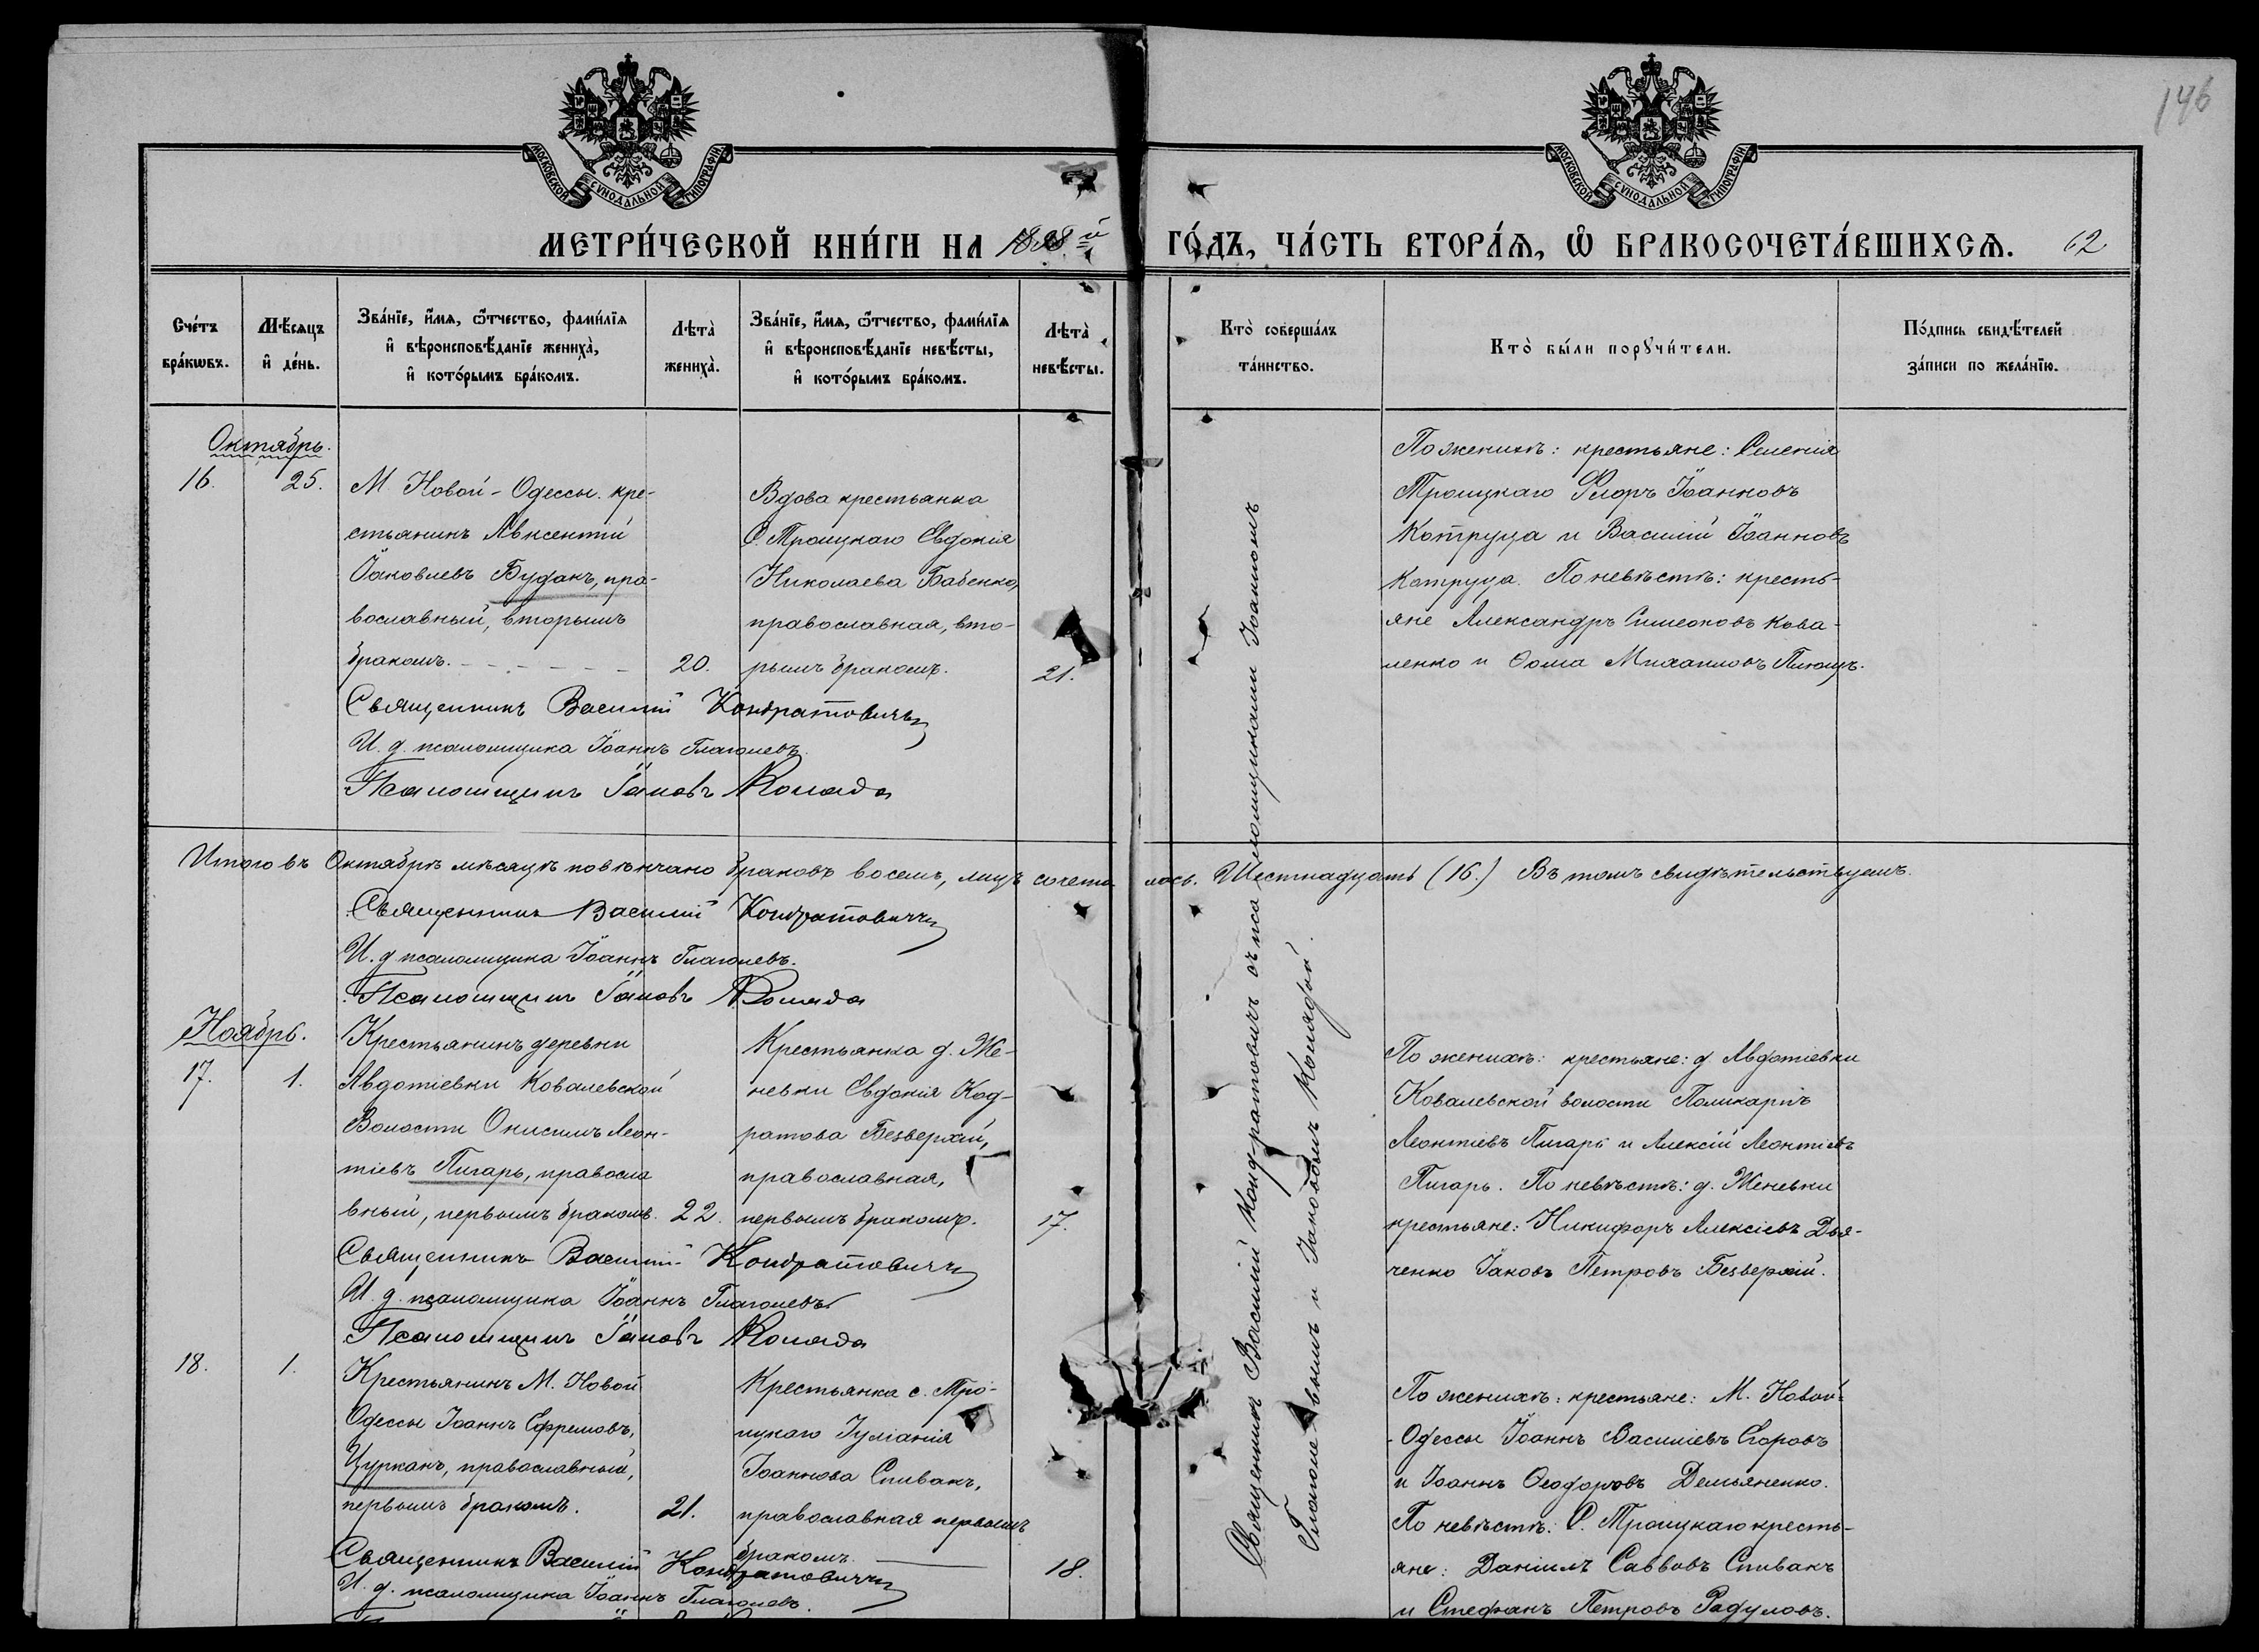 146
МОСКОВСКОЙ СѴНОДАЛЬНОЙ ТИПОГРАФІИ
МОСКОВСКОЙ СѴНОДАЛЬНОЙ ТИПОГРАФІИ
МЕТРИ́ЧЕСКОЙ КНИ́ГИ НА 1898 й ГО́ДЪ, ЧА́СТЬ ВТОРА́Ѧ, Ѽ БРАКОСОЧЕТА́ВШИХСѦ. 62
Сче́тъ бра́кѡвъ.
Мѣ́сѧцъ и҆ де́нь.
Зва́нїе, и҆́мѧ, ѻ҆́тчество, фами́лїѧ
и҆ вѣроисповѣ́данїе жениха̀,
и҆ кото́рымъ бра́комъ.
Лѣта̀ жениха̀.
Зва́нїе, и҆́мѧ, ѻ҆́тчество, фами́лїѧ
и҆ вѣроисповѣ́данїе невѣ́сты,
и҆ кото́рымъ бра́комъ.
Лѣта̀ невѣ́сты.
Кто̀ соверша́лъ та́инство.
Кто̀ бы́ли порꙋчи́тели.
По́дпись свидѣ́телей за́писи по жела́нїю.
Октябрь.
16. 25.
М. Новой-Одессы. кре-
стьянинъ Авксентій
Іаковлевъ Будакъ, пра-
вославный, вторымъ
бракомъ. 20.
Вдова крестьянка
С. Троицкаго Евдокія
Николаева Бабенко,
православная, вто-
рымъ бракомъ. 21.
По женихѣ: крестьяне: Селенія
Троицкаго Флоръ Іоанновъ
Котруца и Василій Іоанновъ
Катруца. По невѣстѣ: кресть-
яне Александръ Симеоновъ Кова-
ленко и Ѳома Михаиловъ Плющъ.
Священникъ Василій Кондратовичъ
И. д. псаломщика Іоаннъ Глаголевъ.
Псаломщикъ Іаковъ Коляда
Итого въ Октябрѣ мѣсяцѣ повѣнчано браковъ восемь, лицъ сочета лось. Шестнадцать (16.) Въ томъ свидѣтельствуемъ.
Священникъ Василій Кондратовичъ
И. д псаломщика Іоаннъ Глаголевъ.
Псаломщикъ Іаковъ Коляда
Ноябрь.
17. 1.
Крестьянинъ деревни
Авдотіевки Ковалевской
Волости Онисимъ Леон-
тіевъ Пигарь, правосла
вный, первымъ бракомъ. 22.
Крестьянка д. Же-
невки Евдокія Код-
ратова Безверхій,
православная,
первымъ бракомъ. 17.
По женихѣ: крестьяне: д. Авдотіевки
Ковалевской волости Поликарпъ
Леонтіевъ Пигарь и Алексій Леонтіевъ
Пигарь. По невѣстѣ: д. Женевки
крестьяне: Никифоръ Алексіевъ Дья-
ченко Іаковъ Петровъ Безверхій.
Священникъ Василій Кондратовичъ
И. д. псаломщика Іоаннъ Глаголевъ
Псаломщикъ Іаковъ Коляда
18. 1.
Крестьянинъ М. Новой
Одессы Іоаннъ Ефремовъ,
Цурканъ, православный,
первымъ бракомъ. 21.
Крестьянка с. Тро-
ицкаго Іуліанія
Іоаннова Спивакъ,
православная первымъ
бракомъ. 18.
По женихѣ: крестьяне: М. Новой-
-Одессы Іоаннъ Василіевъ Егоровъ
и Іоаннъ Ѳеодоровъ Демьяненко.
По невѣстѣ: С. Троицкаго кресть-
яне: Даніилъ Саввовъ Спивакъ
и Стефанъ Петровъ Радуловъ.
Священникъ Василій Кондратовичъ
И. д. псаломщика Іоаннъ Глаголевъ.
Священникъ Василій Кондратовичъ съ псаломщиками Іоанномъ
Глаголевымъ и Іаковомъ Колядой.